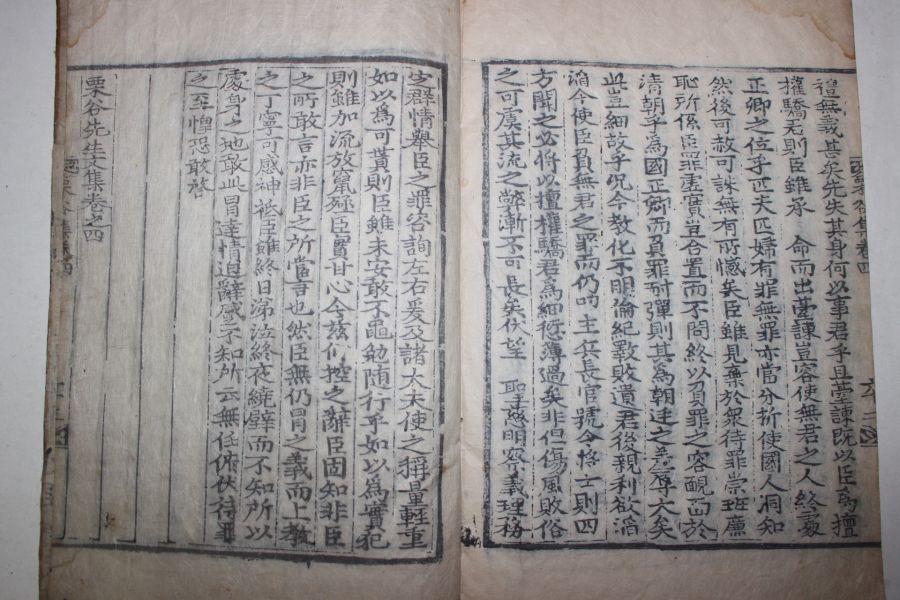 禮無義甚矣先失其身何以事君乎且臺諫旣以臣爲擅
權驕君則臣雖承 命而出臺諫豈容使無君之人終忝
正卿之位乎匹夫匹婦有罪無罪亦當分析使國人洞知
然後可赦可誅無有所憾矣臣雖見棄於衆待罪崇班廉
恥所係臣罪虛實豈合置而不問終以負罪之容靦面於
清朝乎爲國正卿而負罪耐彈則其爲朝廷之羞辱大矣
此豈細故乎况今教化不明倫紀斁敗遺君後親利欲滔
滔今使臣負無君之罪而仍叨主兵長官號令將士則四
方聞之必將以擅權驕君爲細愆薄過矣非但傷風敗俗
之可虞其流之弊漸不可長矣伏望 聖慈明察義理務
群情擧臣之罪咨詢左右爰及諸大夫使之稱量輕重
如以爲可貰則臣雖未安敢不黽勉随行乎如以爲實犯
則雖加流放竄殛臣實甘心今玆仰控之辭臣固知非臣
之所敢言亦非臣之所當言也然臣無仍冒之義而上教
之丁寧可感神祗臣雖終日涕泣終夜繞壁而不知所以
處身之地敢此冒達情迫辭蹙不知所云無任俯伏待罪
之至惶恐敢啓
栗谷先生文集卷之四